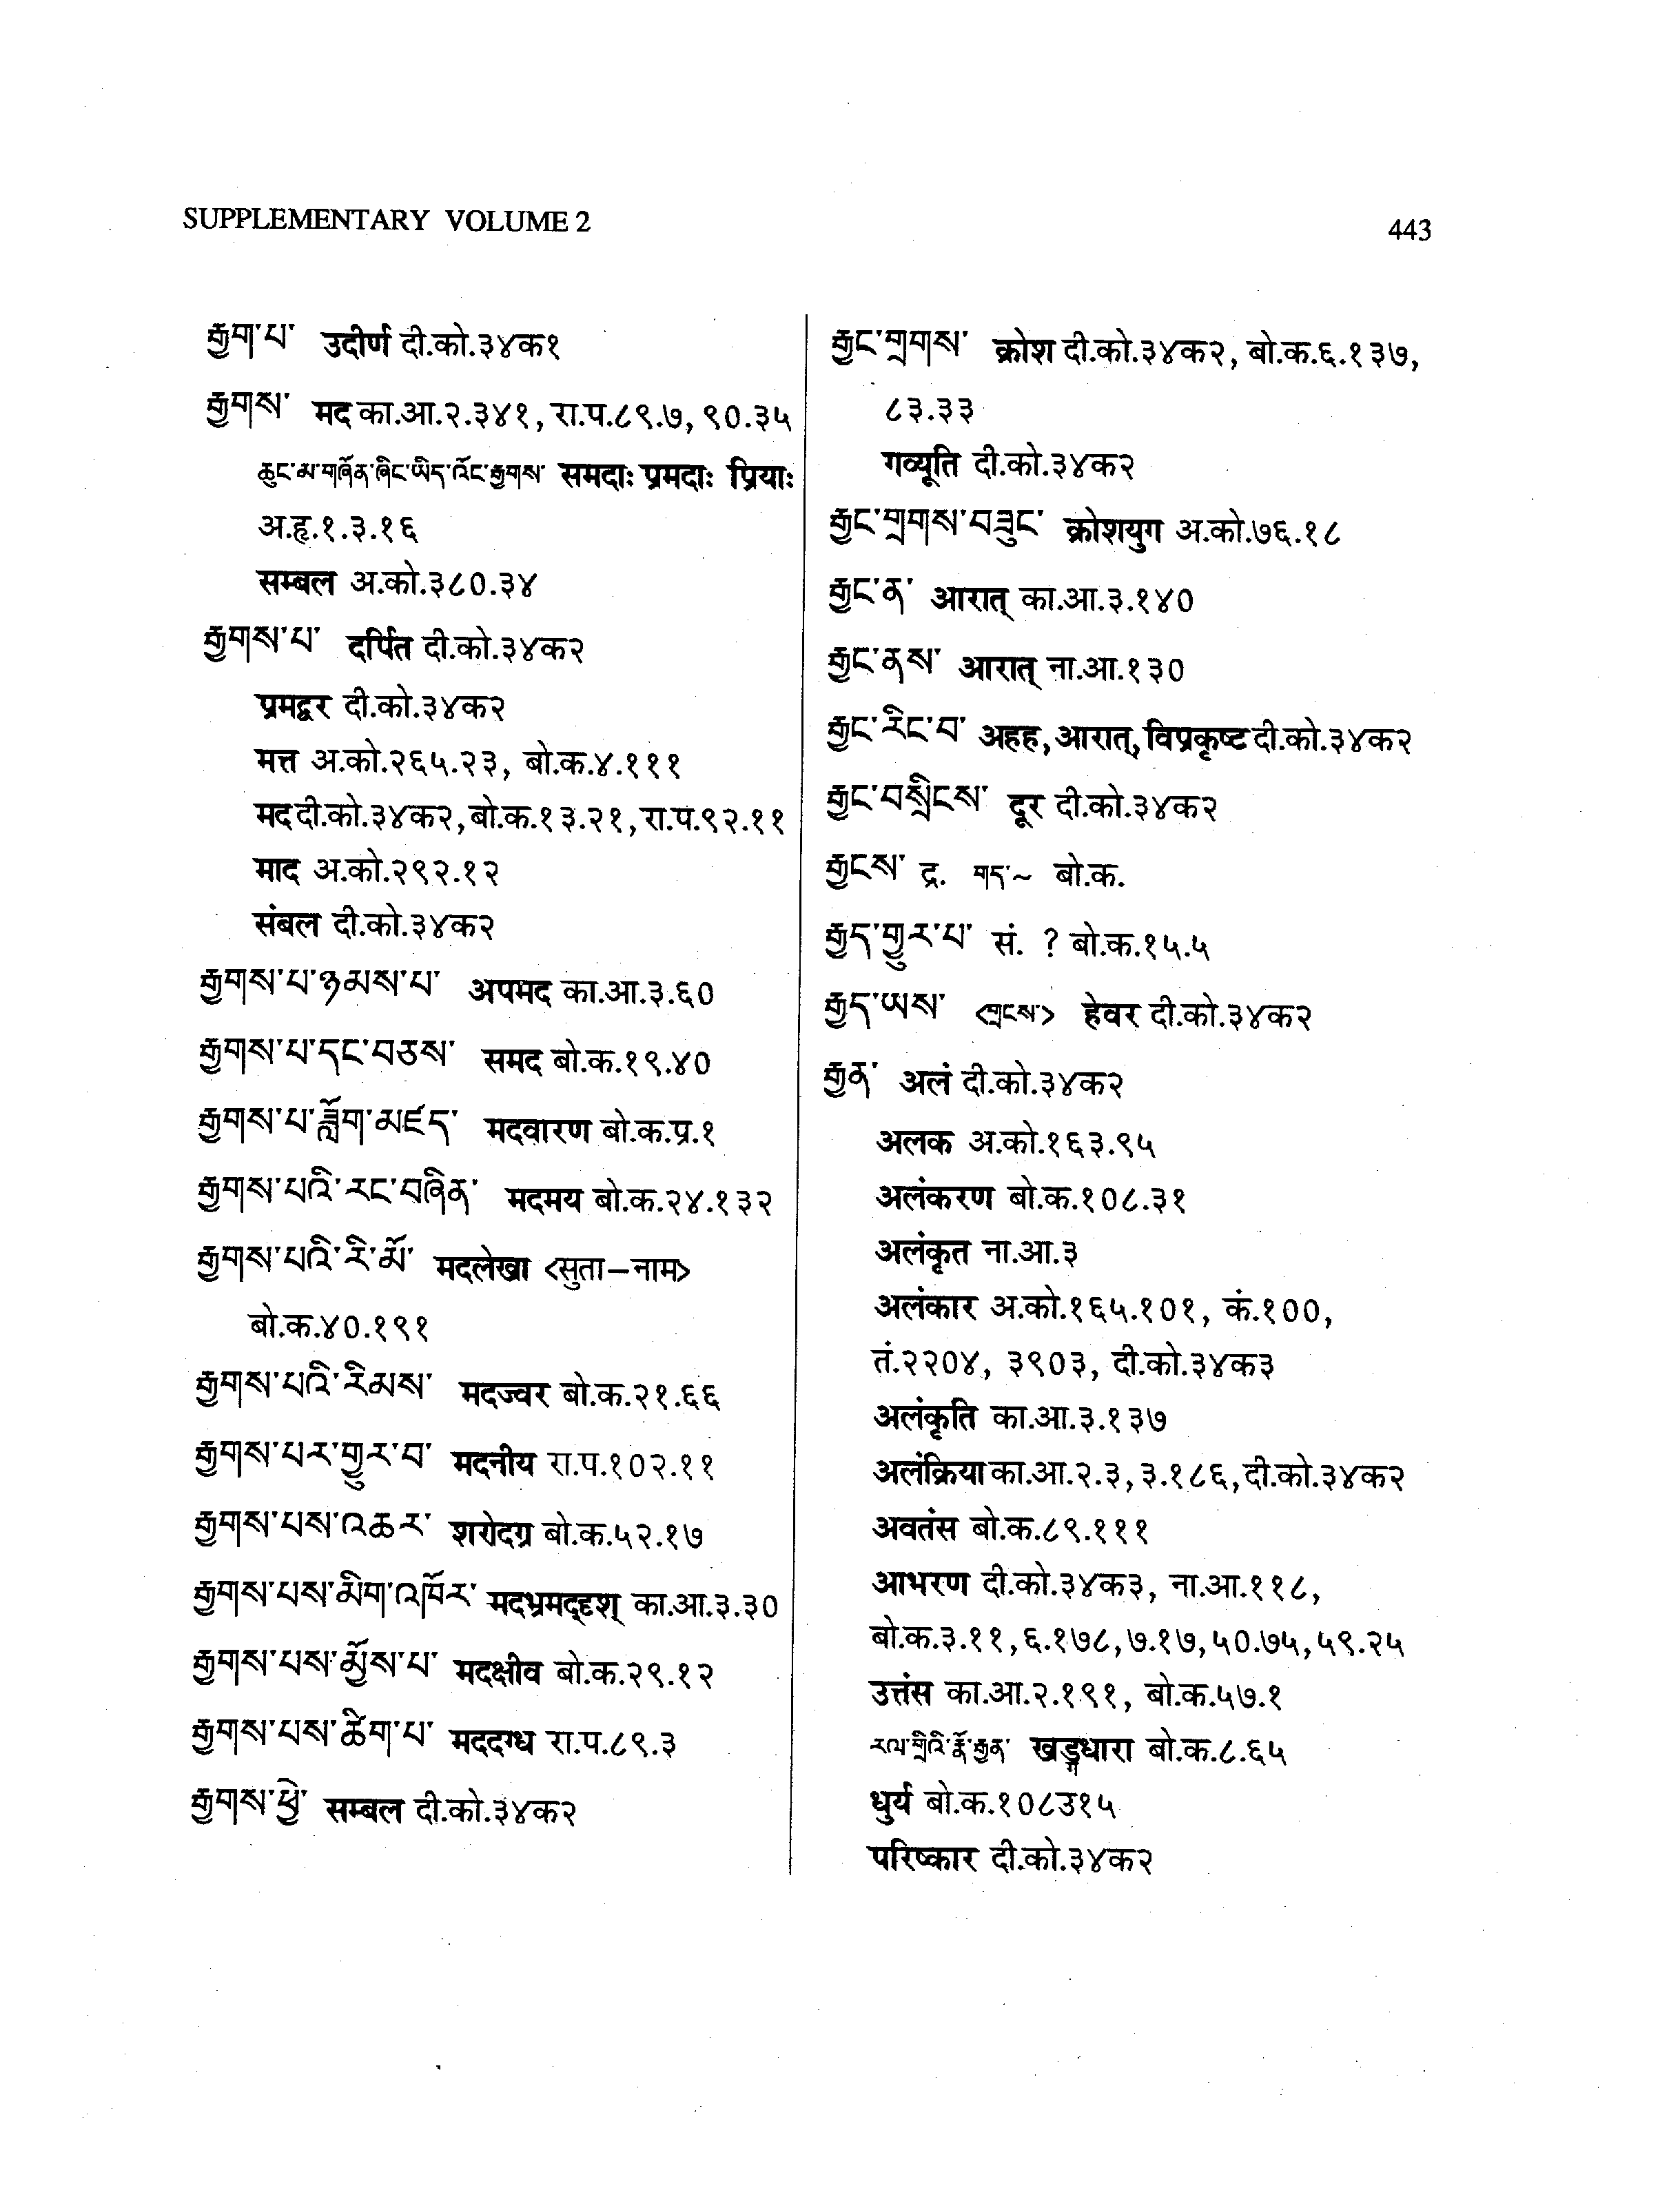 SUPPLEMENTARY VOLUME 2
443
རྒྱག་པ་ उदीर्ण दी.को.३४क१
རྒྱགས་ मद का.आ.२.३४१, रा.प.८९.७, ९०.३५
ཆུང་མ་གཞོན་ཞིང་ཡིད་འོང་རྒྱགས་ समदाः प्रमदाः प्रियाः
अ.हृ.१.३.१६
सम्बल अ.को.३८०.३४
རྒྱགས་པ་ दर्पित दी.को.३४क२
प्रमद्वर दी.को.३४क२
मत्त अ.को.२६५.२३, बो.क.४.१११
मद दी.को.३४क२, बो.क.१३.२१, रा.प.९२.११
माद अ.को.२९२.१२
संबल दी.को.३४क२
རྒྱགས་པ་ཉམས་པ་ अपमद का.आ.३.६०
རྒྱགས་པ་དང་བཅས་ समद बो.क.१९.४०
རྒྱགས་པ་ཟློག་མཛད་ मदवारण बो.क.प्र.१
རྒྱགས་པའི་རང་བཞིན་ मदमय बो.क.२४.१३२
རྒྱགས་པའི་རི་མོ་ मदलेखा <सुता–नाम>
बो.क.४०.१९१
རྒྱགས་པའི་རིམས་ मदज्वर बो.क.२१.६६
རྒྱགས་པར་གྱུར་བ་ मदनीय रा.प.१०२.११
རྒྱགས་པས་འཆར་ शरोदग्र बो.क.५२.१७
རྒྱགས་པས་མིག་འཁོར་ मदभ्रमद्दृश् का.आ.३.३०
རྒྱགས་པས་མྱོས་པ་ मदक्षीव बो.क.२९.१२
རྒྱགས་པས་ཚིག་པ་ मददग्ध रा.प.८९.३
རྒྱགས་ཕྱེ་ सम्बल दी.को.३४क२
རྒྱང་གྲགས་ क्रोश दी.को.३४क२, बो.क.६.१३७,
८३.३३
गव्यूति दी.को.३४क२
རྒྱང་གྲགས་བཟུང་ क्रोशयुग अ.को.७६.१८
རྒྱང་ན་ आरात् का.आ.३.१४०
རྒྱང་ནས་ आरात् ना.आ.१३०
རྒྱང་རིང་བ་ अहह, आरात्, विप्रकृष्ट दी.को.३४क२
རྒྱང་བསྲིངས་ दूर दी.को.३४क२
རྒྱངས་ द्र. གད་~ बो.क.
རྒྱད་གྱུར་པ་ सं. ? बो.क.१५.५
རྒྱད་ཡས་ <གྲངས་> हेवर दी.को.३४क२
རྒྱན་ अलं दी.को.३४क२
अलक अ.को.१६३.९५
अलंकरण बो.क.१०८.३१
अलंकृत ना.आ.३
अलंकार अ.को.१६५.१०१, कं.१००,
तं.२२०४, ३९०३, दी.को.३४क३
अलंकृति का.आ.३.१३७
अलंक्रिया का.आ.२.३, ३.१८६, दी.को.३४क२
अवतंस बो.क.८९.१११
आभरण दी.को.३४क३, ना.आ.११८,
बो.क.३.११, ६.१७८, ७.१७, ५०.७५, ५९.२५
उत्तंस का.आ.२.१९१, बो.क.५७.१
རལ་གྲིའི་རྣོ་རྒྱན་ खड्गधारा बो.क.८.६५
धुर्य बो.क.१०८उ१५
परिष्कार दी.को.३४क२